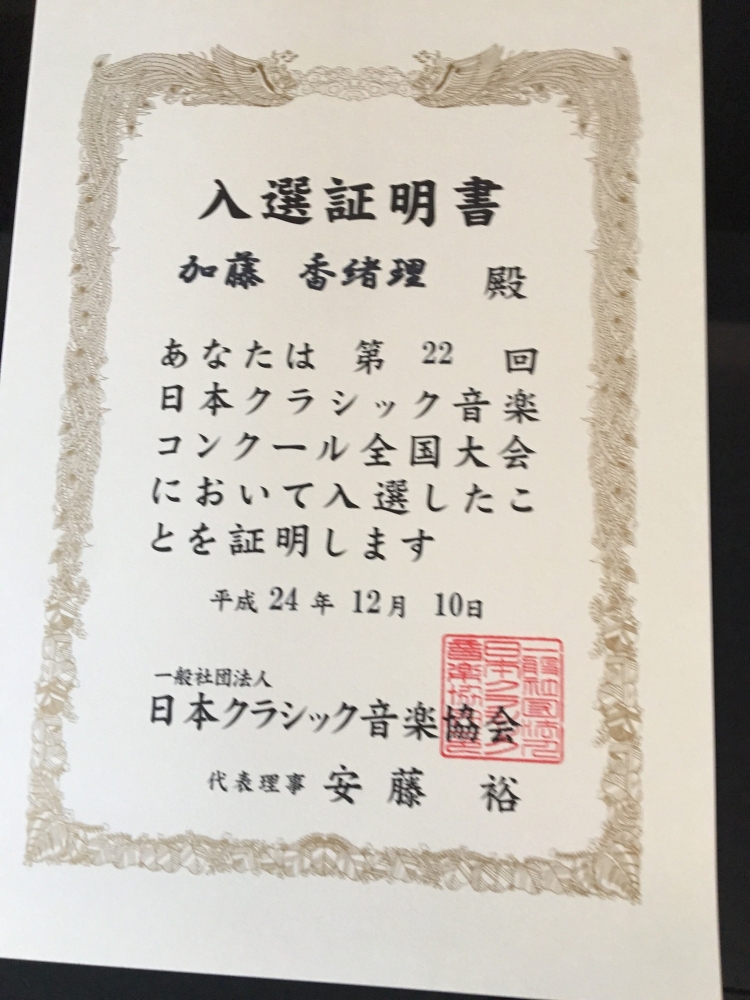 入選証明書
加藤 香緒理 殿
あなたは 第 22 回
日本クラシック音楽
コンクール全国大会
において入選したこ
とを証明します
平成 24 年 12 月 10 日
一般社団法人
日本クラシック音楽協会
代表理事 安藤 裕